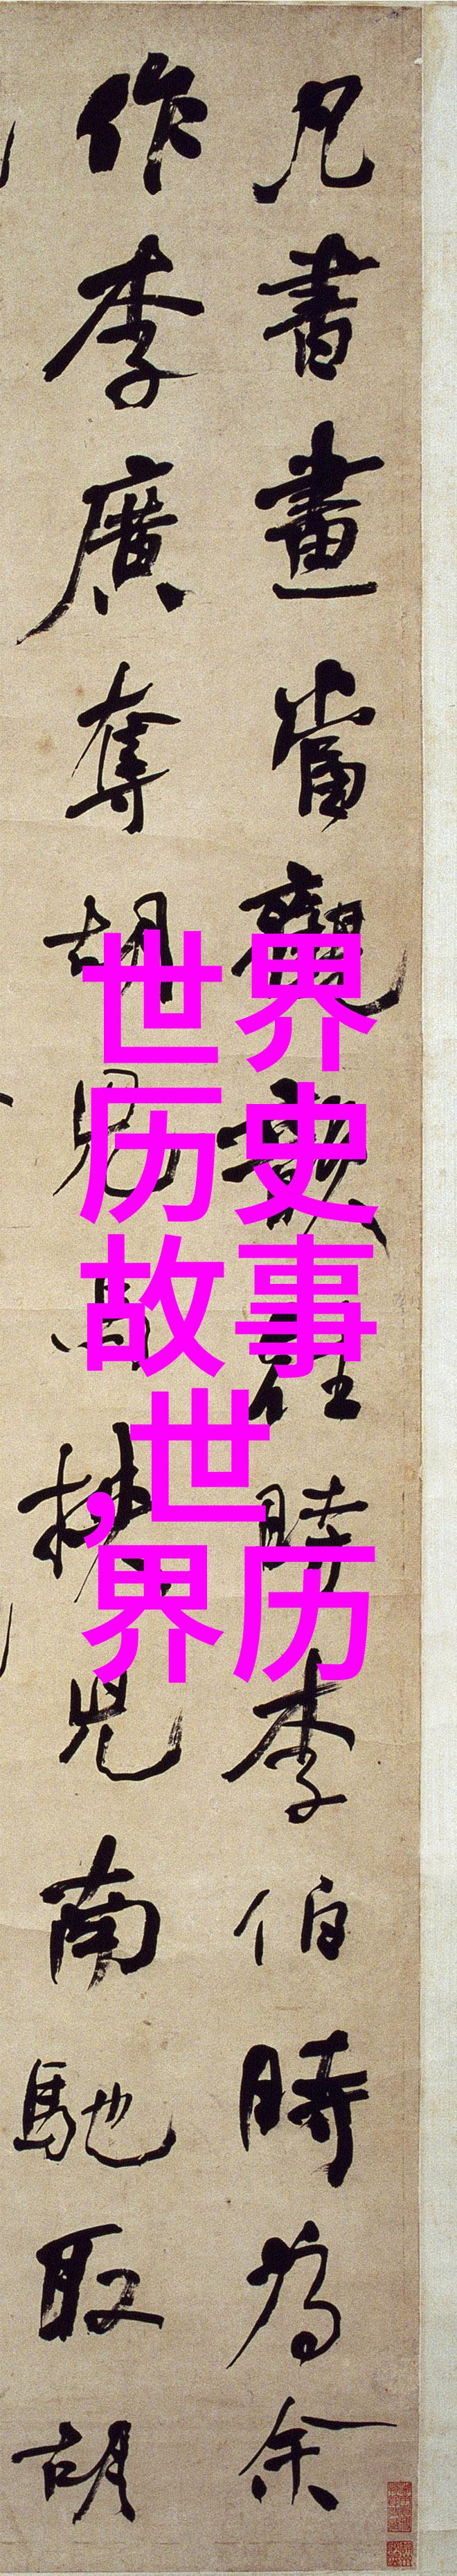 凡書畫當觀韻往時李伯時為余
作李廣奪胡兒馬挾兒南馳取胡
世界
历史
故事
,世
界历